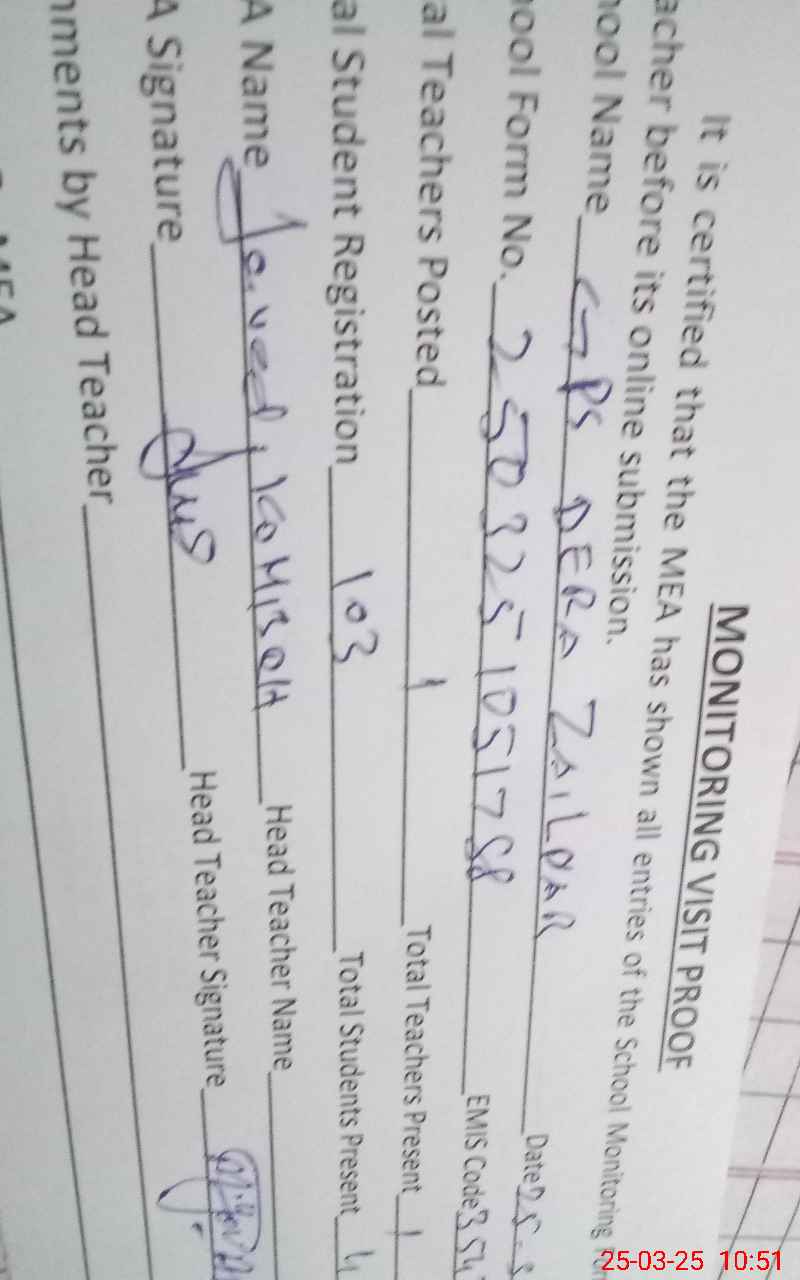 MONITORING VISIT PROOF
It is certified that the MEA has shown all entries of the School Monitoring For
acher before its online submission.
hool Name GPS DERA ZAILDAR Date 25-3
hool Form No. 25032510517 EMIS Code 354
al Teachers Posted 1 Total Teachers Present 1
al Student Registration 103 Total Students Present
A Name Javed Head Teacher Name
A Signature Head Teacher Signature
nments by Head Teacher
MEA
25-03-25 10:51